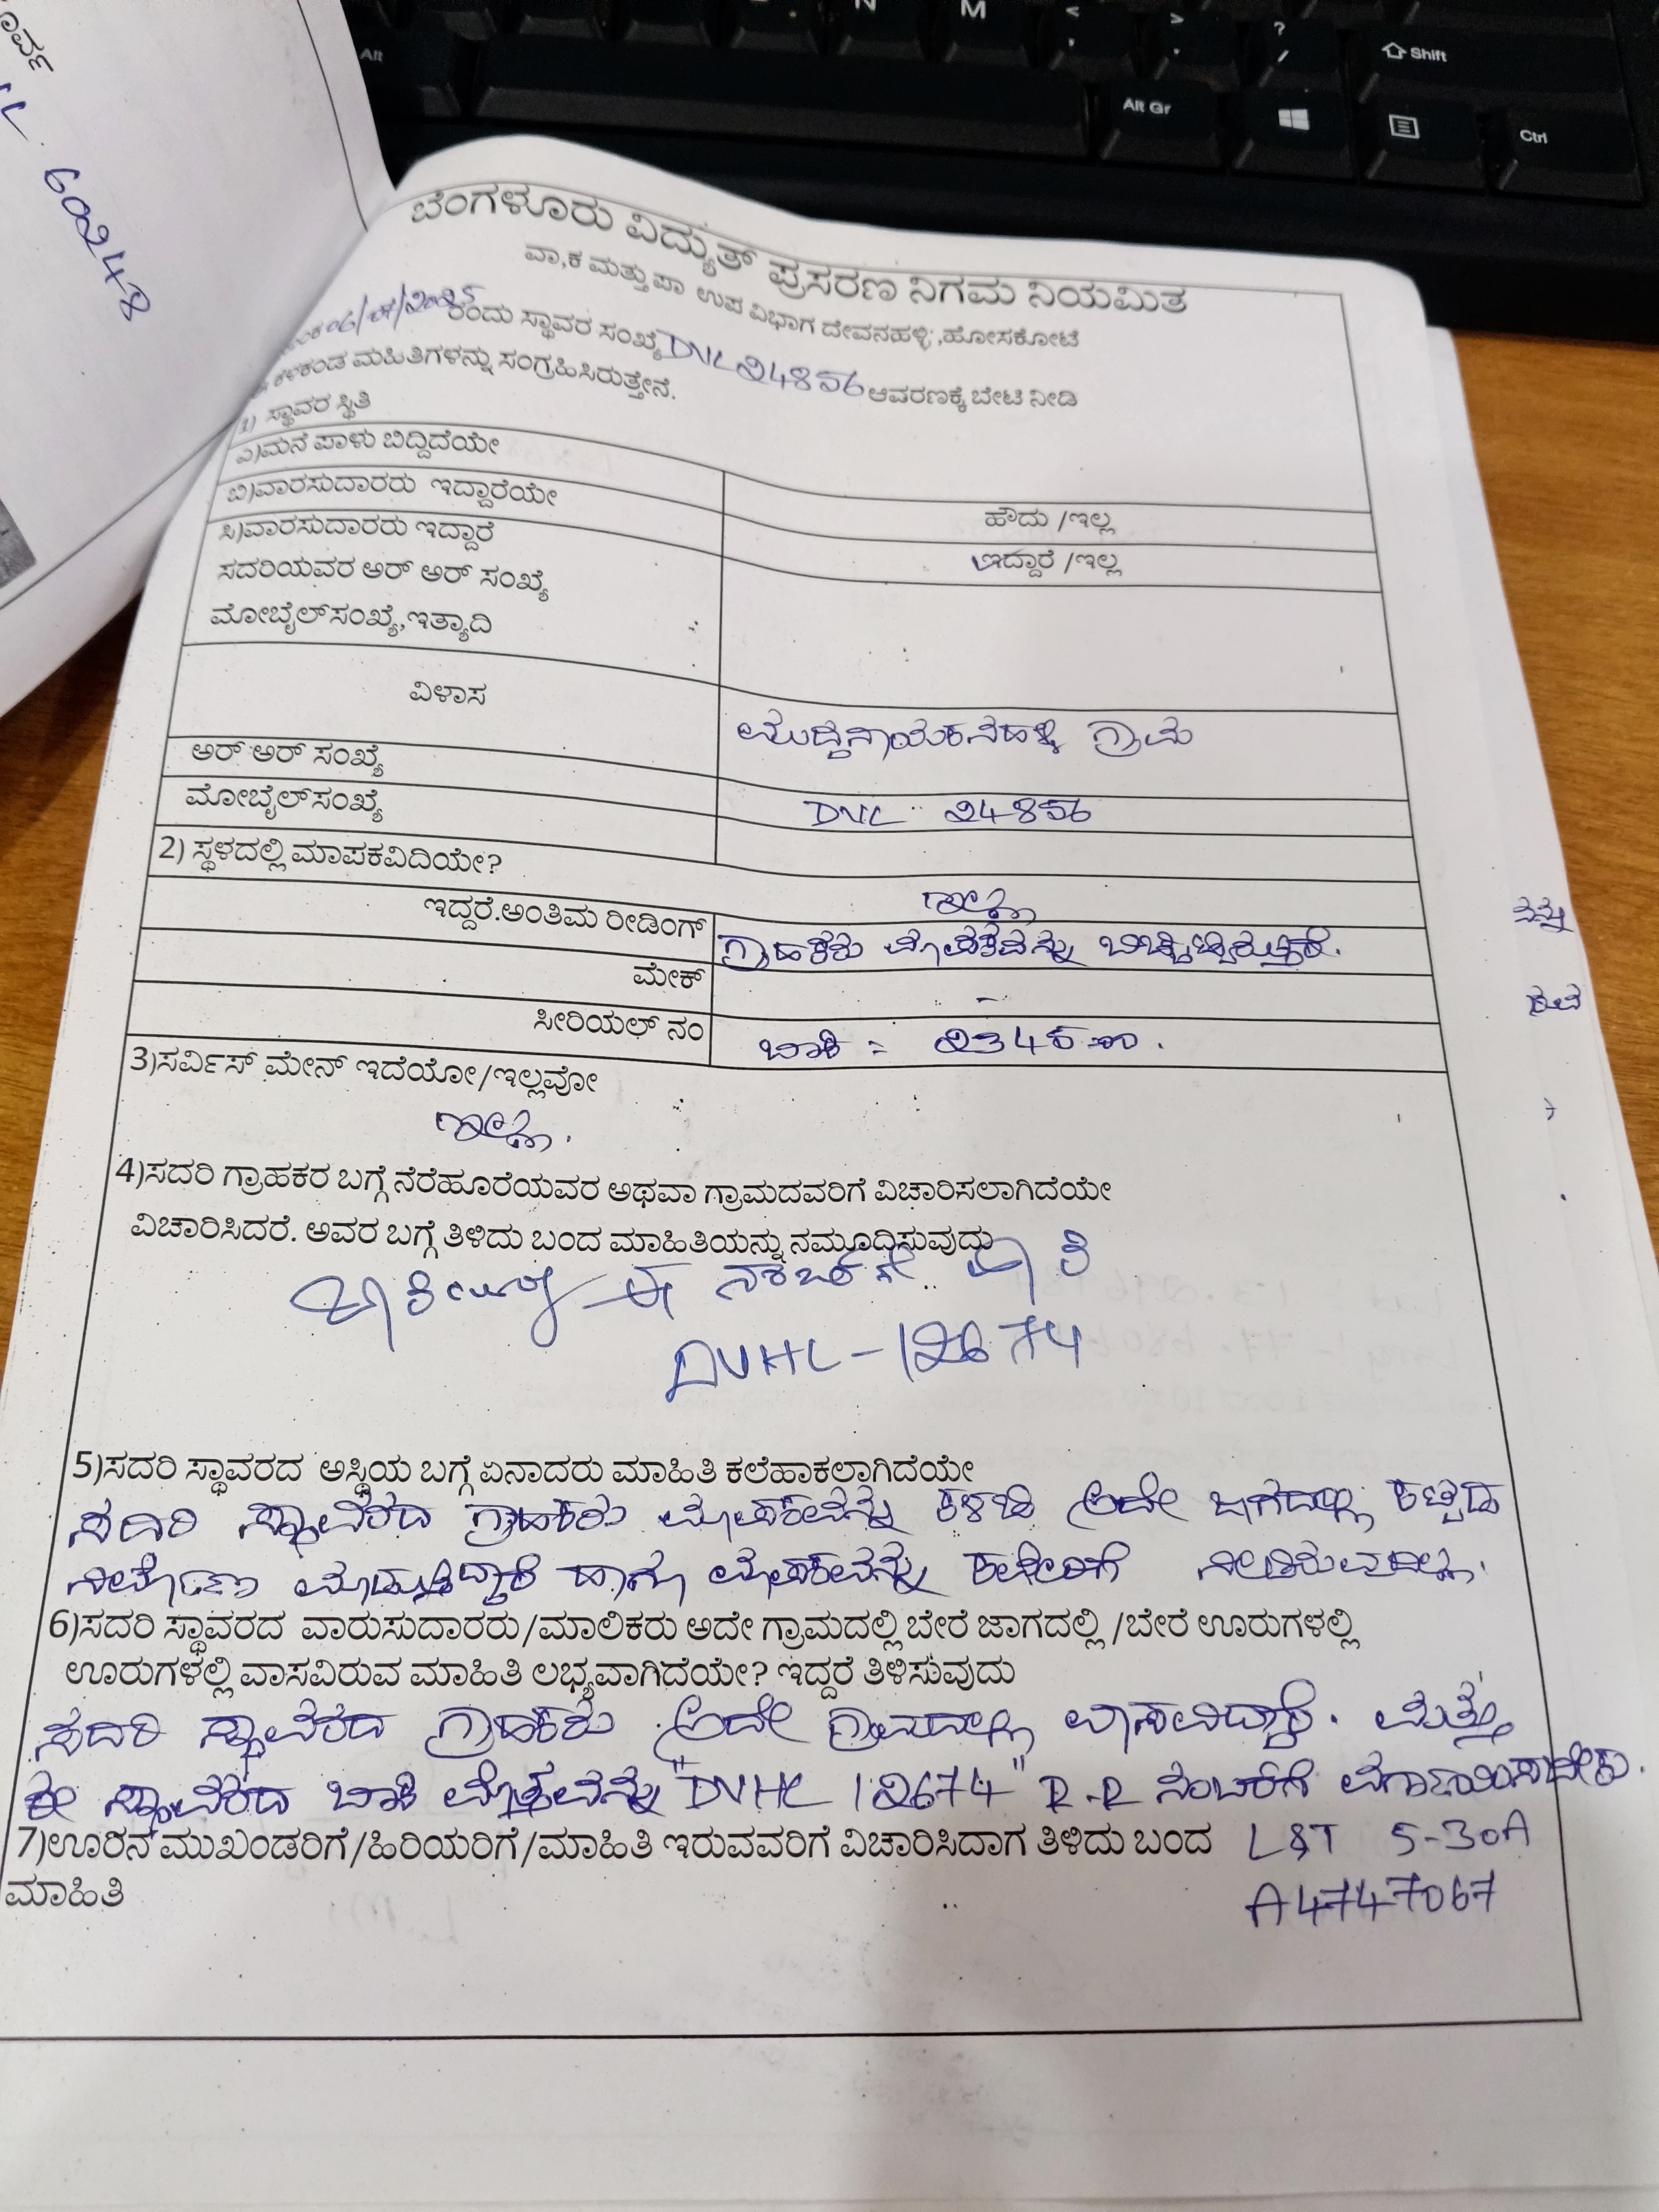 ಬೆಂಗಳೂರು ವಿದ್ಯುತ್ ಪ್ರಸರಣ ನಿಗಮ ನಿಯಮಿತ
ವಾ,ಕ ಮತ್ತು ಪಾ ಉಪ ವಿಭಾಗ ದೇವನಹಳ್ಳಿ,ಹೋಸಕೋಟೆ
ರಂದು ಸ್ಥಾವರ ಸಂಖ್ಯೆ DVL 24856 ಆವರಣಕ್ಕೆ ಬೇಟಿ ನೀಡಿ
ಕೆಳಕಂಡ ಮಹಿತಿಗಳನ್ನು ಸಂಗ್ರಹಿಸಿರುತ್ತೇನೆ.
1) ಸ್ಥಾವರ ಸ್ಥಿತಿ
ಎ)ಮನೆ ಪಾಳು ಬಿದ್ದಿದೆಯೇ
ಹೌದು /ಇಲ್ಲ
ಬಿ)ವಾರಸುದಾರರು ಇದ್ದಾರೆಯೇ
ಇದ್ದಾರೆ /ಇಲ್ಲ
ಸಿ)ವಾರಸುದಾರರು ಇದ್ದಾರೆ
ಸದರಿಯವರ ಅರ್ ಅರ್ ಸಂಖ್ಯೆ
ಮೋಬೈಲ್‌ಸಂಖ್ಯೆ,ಇತ್ಯಾದಿ
ವಿಳಾಸ
ಮುದ್ದನಾಯಕನಹಳ್ಳಿ ಗ್ರಾಮ
ಅರ್ ಅರ್ ಸಂಖ್ಯೆ
DVL 24856
ಮೋಬೈಲ್‌ಸಂಖ್ಯೆ
2) ಸ್ಥಳದಲ್ಲಿ ಮಾಪಕವಿದಿಯೇ?
ಇಲ್ಲ
ಇದ್ದರೆ.ಅಂತಿಮ ರೀಡಿಂಗ್
ಗ್ರಾಹಕರು ಮಾಪಕವನ್ನು ಬಿಚ್ಚಿಟ್ಟಿರುತ್ತಾರೆ.
ಮೇಕ್
-
ಸೀರಿಯಲ್ ನಂ
ಬಾಕಿ =
3)ಸರ್ವಿಸ್ ಮೇನ್ ಇದೆಯೋ/ಇಲ್ಲವೋ
ಇಲ್ಲ.
4)ಸದರಿ ಗ್ರಾಹಕರ ಬಗ್ಗೆ ನೆರೆಹೂರೆಯವರ ಅಥವಾ ಗ್ರಾಮದವರಿಗೆ ವಿಚಾರಿಸಲಾಗಿದೆಯೇ
ವಿಚಾರಿಸಿದರೆ. ಅವರ ಬಗ್ಗೆ ತಿಳಿದು ಬಂದ ಮಾಹಿತಿಯನ್ನು ನಮೂದಿಸುವುದು
DVHL-12674
5)ಸದರಿ ಸ್ಥಾವರದ ಅಸ್ಥಿಯ ಬಗ್ಗೆ ಏನಾದರು ಮಾಹಿತಿ ಕಲೆಹಾಕಲಾಗಿದೆಯೇ
ಸದರಿ ಸ್ಥಾವರದ ಗ್ರಾಹಕರು ಮಾಪಕವನ್ನು ಕಳಚಿ ಅದೇ ಜಾಗದಲ್ಲಿ ಕಟ್ಟಡ
ನಿರ್ಮಾಣ ಮಾಡುತ್ತಿದ್ದಾರೆ ಹಾಗು ಮಾಪಕವನ್ನು ಕಛೇರಿಗೆ ನೀಡಿರುವುದಿಲ್ಲ.
6)ಸದರಿ ಸ್ಥಾವರದ ವಾರುಸುದಾರರು/ಮಾಲಿಕರು ಅದೇ ಗ್ರಾಮದಲ್ಲಿ ಬೇರೆ ಜಾಗದಲ್ಲಿ /ಬೇರೆ ಊರುಗಳಲ್ಲಿ
ಊರುಗಳಲ್ಲಿ ವಾಸವಿರುವ ಮಾಹಿತಿ ಲಭ್ಯವಾಗಿದೆಯೇ? ಇದ್ದರೆ ತಿಳಿಸುವುದು
ಸದರಿ ಸ್ಥಾವರದ ಗ್ರಾಹಕರು ಅದೇ ಗ್ರಾಮದಲ್ಲಿ ವಾಸವಿದ್ದಾರೆ. ಮತ್ತು
ಈ ಸ್ಥಾವರದ ಬಾಕಿ ಮೊತ್ತವನ್ನು "DVHL 12674" R.R ನಂಬರಿಗೆ ವರ್ಗಾಯಿಸಬೇಕು.
7)ಊರಿನ ಮುಖಂಡರಿಗೆ/ಹಿರಿಯರಿಗೆ/ಮಾಹಿತಿ ಇರುವವರಿಗೆ ವಿಚಾರಿಸಿದಾಗ ತಿಳಿದು ಬಂದ
ಮಾಹಿತಿ
L&T 5-30A
A4747067
60248
Alt
N
M
Alt Gr
Shift
Ctrl